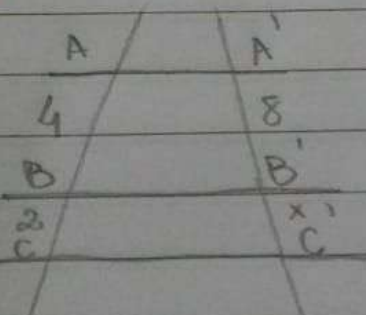 A A'
4 8
B B'
2 x
C C'